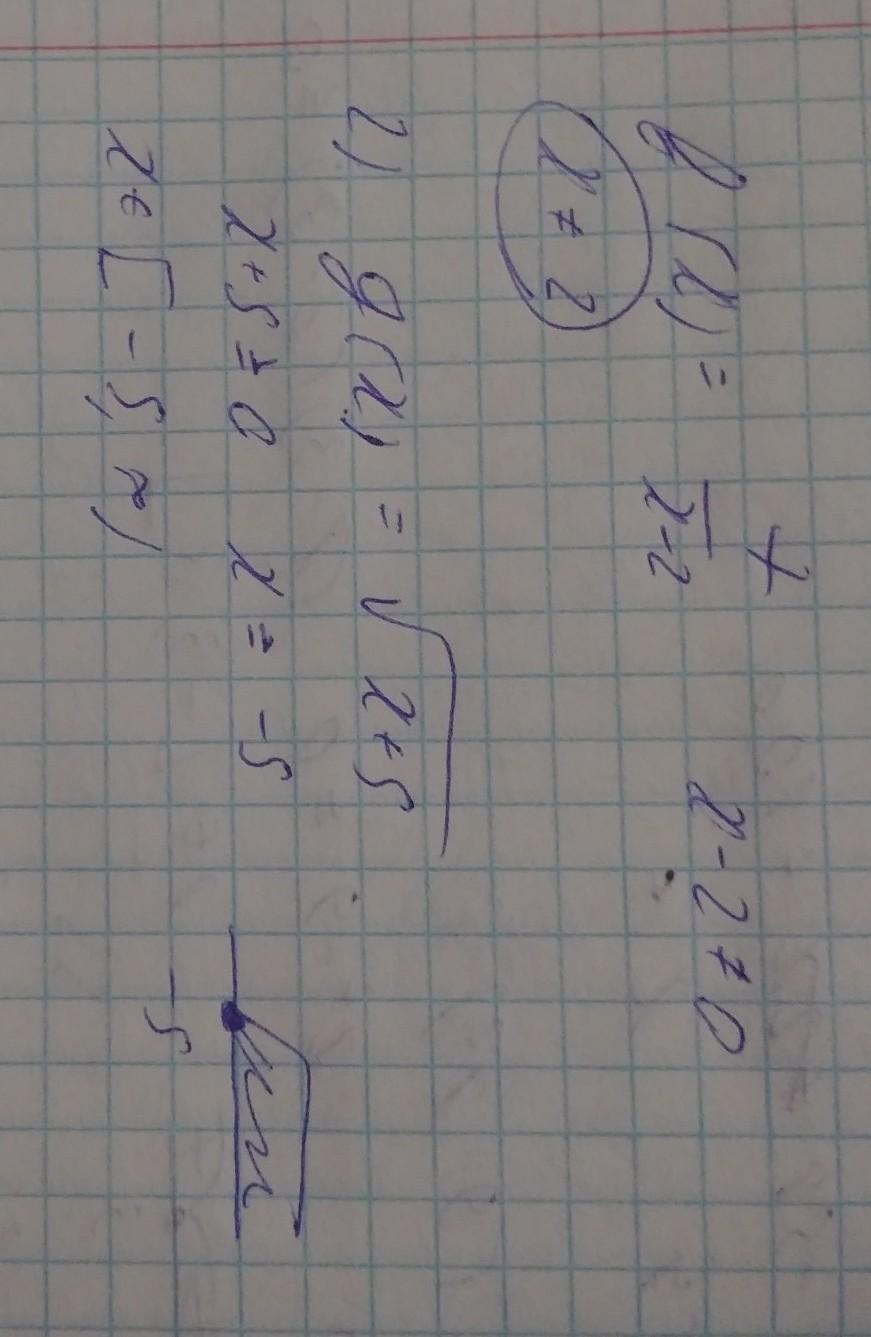 f(x) = 7/(x-2) x - 2 ≠ 0
x ≠ 2
2) g(x) = √(x+5)
x+5 ≥ 0 x ≥ -5
-5
x ∈ [-5; ∞)